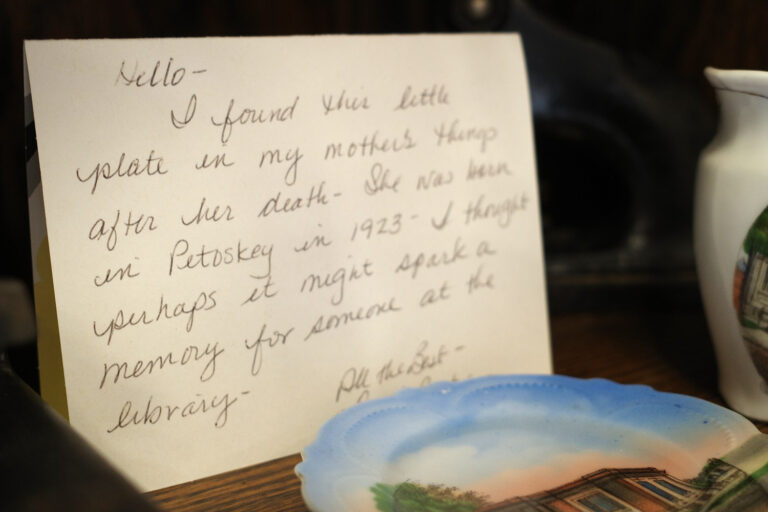 Hello-
I found this little
plate in my mother's things
after her death- She was born
in Petoskey in 1923- I thought
perhaps it might spark a
memory for someone at the
library-
All the Best-